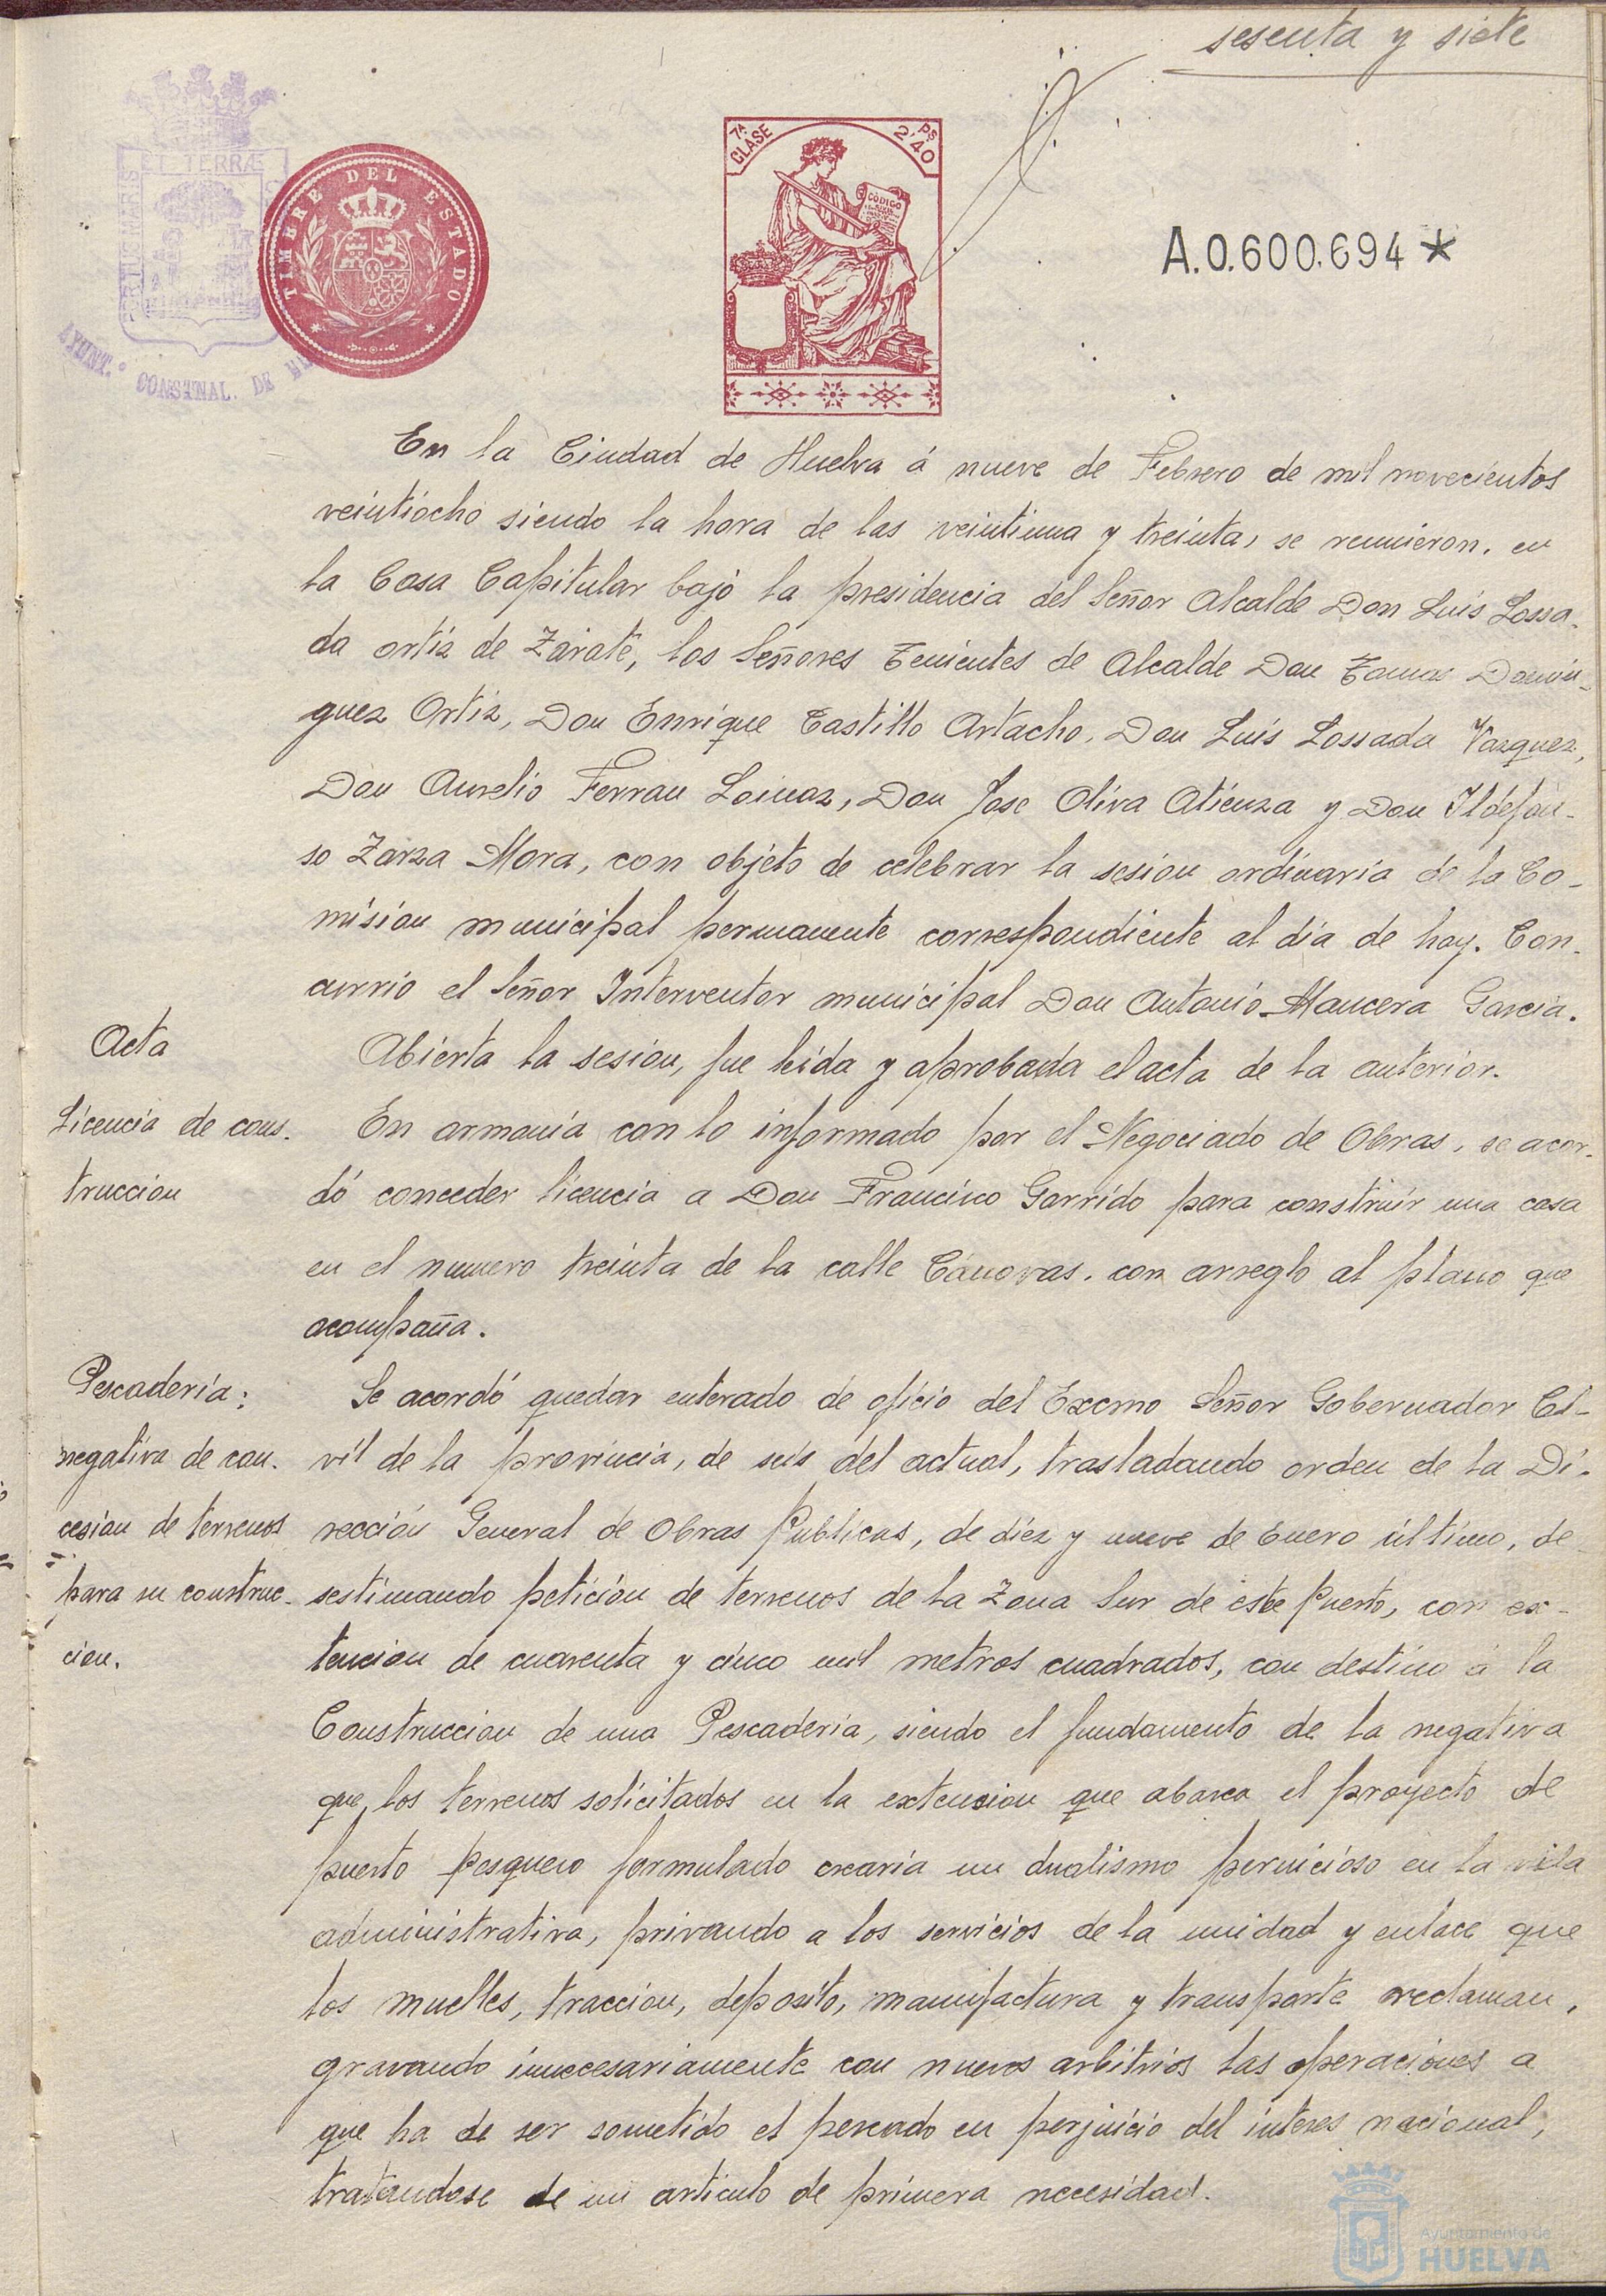 sesenta y siete
ET TERRÆ
AYUNT.º CONSTNAL. DE
TIMBRE DEL ESTADO
7ª CLASE
2'40 Ps
CÓDIGO
A.0.600.694*
En la Ciudad de Huelva á nueve de Febrero de mil novecientos
veintiocho siendo la hora de las veintiuna y treinta, se reunieron, en
la Casa Capitular bajo la presidencia del Señor Alcalde Don Luis Lossa-
da Ortiz de Zárate, los Señores Tenientes de Alcalde Don Tomas Domin-
guez Ortiz, Don Enrique Castillo Artacho, Don Luis Lossada Vazquez,
Don Aurelio Ferrau Loinaz, Don Jose Oliva Atienza y Don Ildefon-
so Zarza Mora, con objeto de celebrar la sesion ordinaria de la Co-
mision municipal permanente correspondiente al dia de hoy. Con-
currio el Señor Interventor municipal Don Antonio Mancera Garcia.
Acta
Abierta la sesion, fue leida y aprobada el acta de la anterior.
Licencia de cons-
truccion
En armonia con lo informado por el Negociado de Obras, se acor-
dó conceder licencia a Don Francisco Garrido para construir una casa
en el numero treinta de la calle Cánovas, con arreglo al plano que
acompaña.
Pescaderia:
negativa de con-
cesion de terrenos
para su construc-
cion.
Se acordó quedar enterado de oficio del Excmo Señor Gobernador Ci-
vil de la provincia, de seis del actual, trasladando orden de la Di-
rección General de Obras Publicas, de diez y nueve de Enero último, de-
sestimando petición de terrenos de la Zona Sur de este Puerto, con ex-
tencion de cuarenta y cinco mil metros cuadrados, con destino á la
Construccion de una Pescaderia, siendo el fundamento de la negativa
que, los terrenos solicitados en la extension que abarca el proyecto de
puerto pesquero formulado crearia un dualismo pernicioso en la vida
administrativa, privando a los servicios de la unidad y enlace que
los muelles, traccion, deposito, manufactura y transporte reclaman,
gravando innecesariamente con nuevos arbitrios las operaciones a
que ha de ser sometido el pescado en perjuicio del interes nacional,
tratandose de un articulo de primera necesidad.
Ayuntamiento de
HUELVA